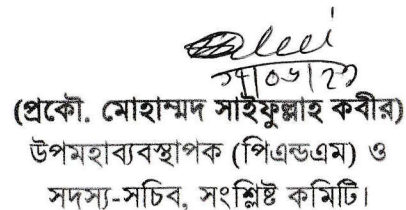 (প্রকৌ. মোহাম্মদ সাইফুল্লাহ কবীর)
উপমহাব্যবস্থাপক (পিএন্ডএম) ও
সদস্য-সচিব, সংশ্লিষ্ট কমিটি।